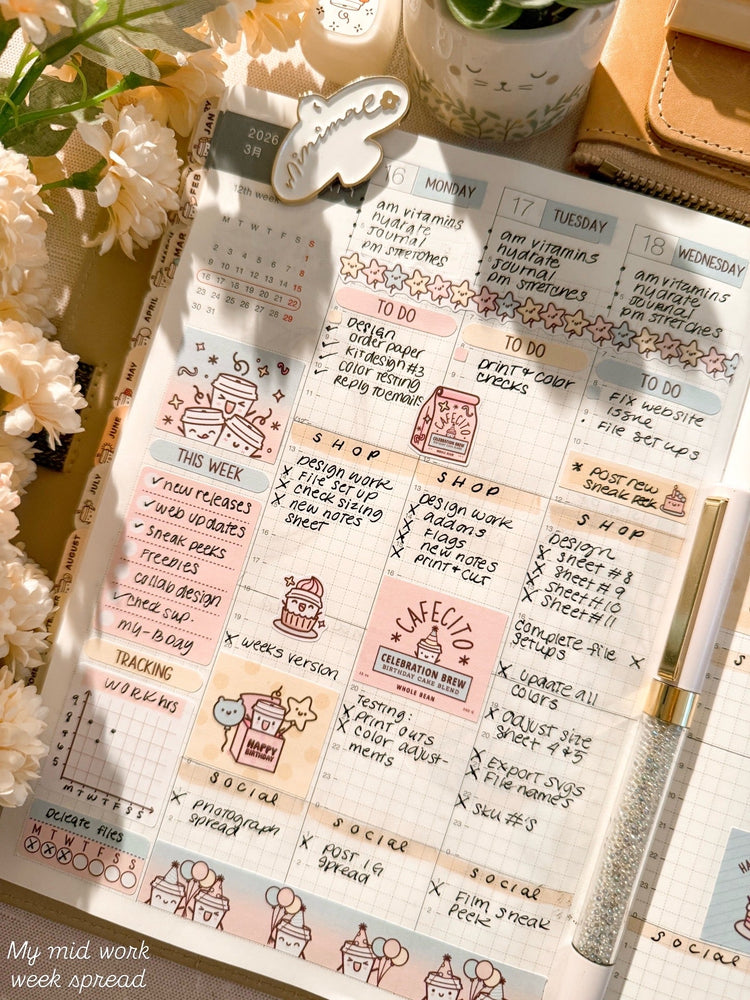 minimal
JAN
FEB
MAR
APRIL
MAY
JUNE
JULY
AUGUST
2026
3月
12th week
M T W T F S S
1
2 3 4 5 6 7 8
9 10 11 12 13 14 15
16 17 18 19 20 21 22
23 24 25 26 27 28 29
30 31
THIS WEEK
✓ new releases
✓ web updates
✓ sneak peeks
Freebies
collab design
✓ check sup.
my-B Day
TRACKING
WORK hrs
9
8
7
6
5
M T W T F S S
Delegate files
M T W T F S S
X X X
16 MONDAY
am vitamins
hydrate
Journal
pm stretches
TO DO
Design
✓ order paper
✓ Kit design #3
✓ color testing
✓ Reply to emails
SHOP
Design work
X File set up
X check sizing
X new notes
sheet
X weeks version
HAPPY
BIRTHDAY
SOCIAL
X photograph
spread
17 TUESDAY
am vitamins
hydrate
Journal
pm stretches
TO DO
print & color
checks
CAFECITO
CELEBRATION BREW
WHOLE BEAN
SHOP
Design work
X addons
X Flags
X new notes
X print & cut
CAFECITO
CELEBRATION BREW
BIRTHDAY CAKE BLEND
WHOLE BEAN
Testing:
X Print outs
X color adjust-
ments
SOCIAL
X POST IG
spread
18 WEDNESDAY
am vitamins
hydrate
Journal
pm stretches
TO DO
FIX website
issue
File set ups
* POST new
sneak peek
SHOP
Design
X sheet #8
X sheet #9
X sheet #10
X sheet #11
complete file
setups X
X update all
colors
X adjust size
sheet 4 & 5
X Export SVGs
X File names
X SKU #'s
SOCIAL
X Film sneak
peek
SOCIAL
My mid work
week spread